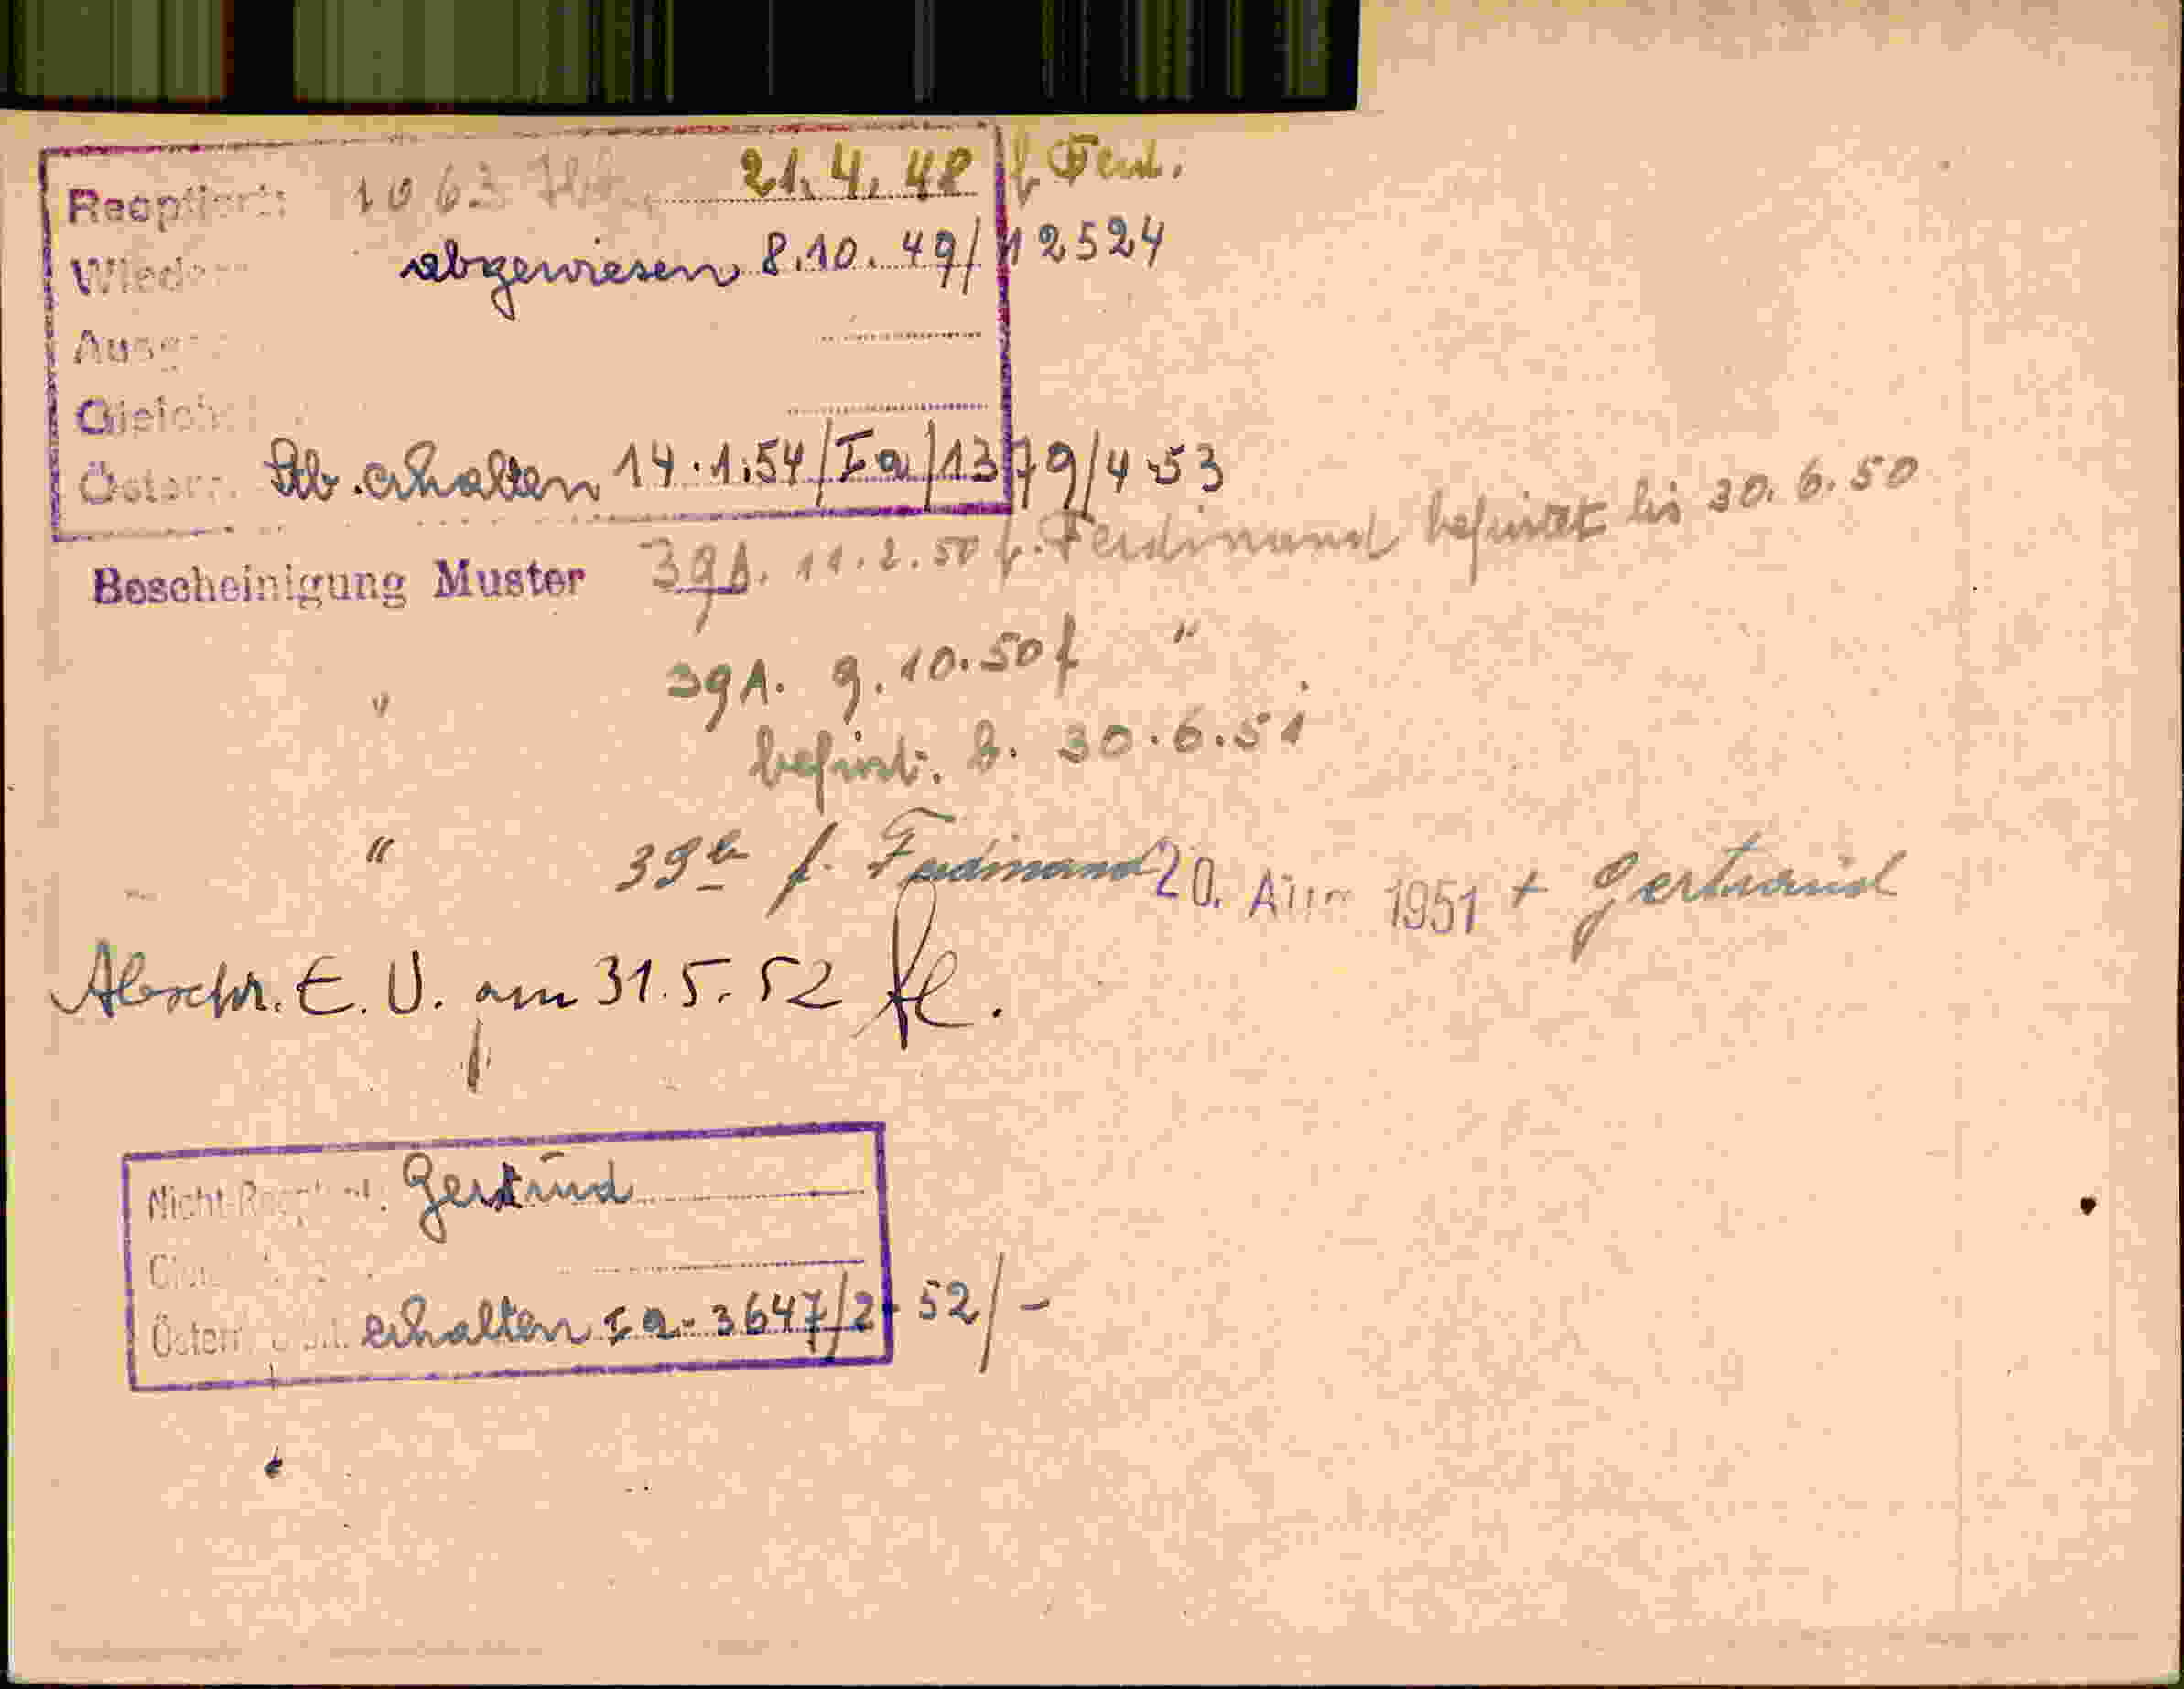 1063 21.4.48 f. Ferd.
abgewiesen 8.10.49/12524
Österr. Stb. erhalten 14.1.54/Ia/1379/4-53
Bescheinigung Muster 39A. 11.2.50 f. Ferdinand befristet bis 30.6.50
" 39A. 9.10.50 f "
befrist. b. 30.6.51
" 39b f. Ferdinand 20. Aug 1951 + Gertraud
Abschr. E. U. am 31.5.52
Nicht Gertraud
Österr. erhalten Ia-3647/2-52/-